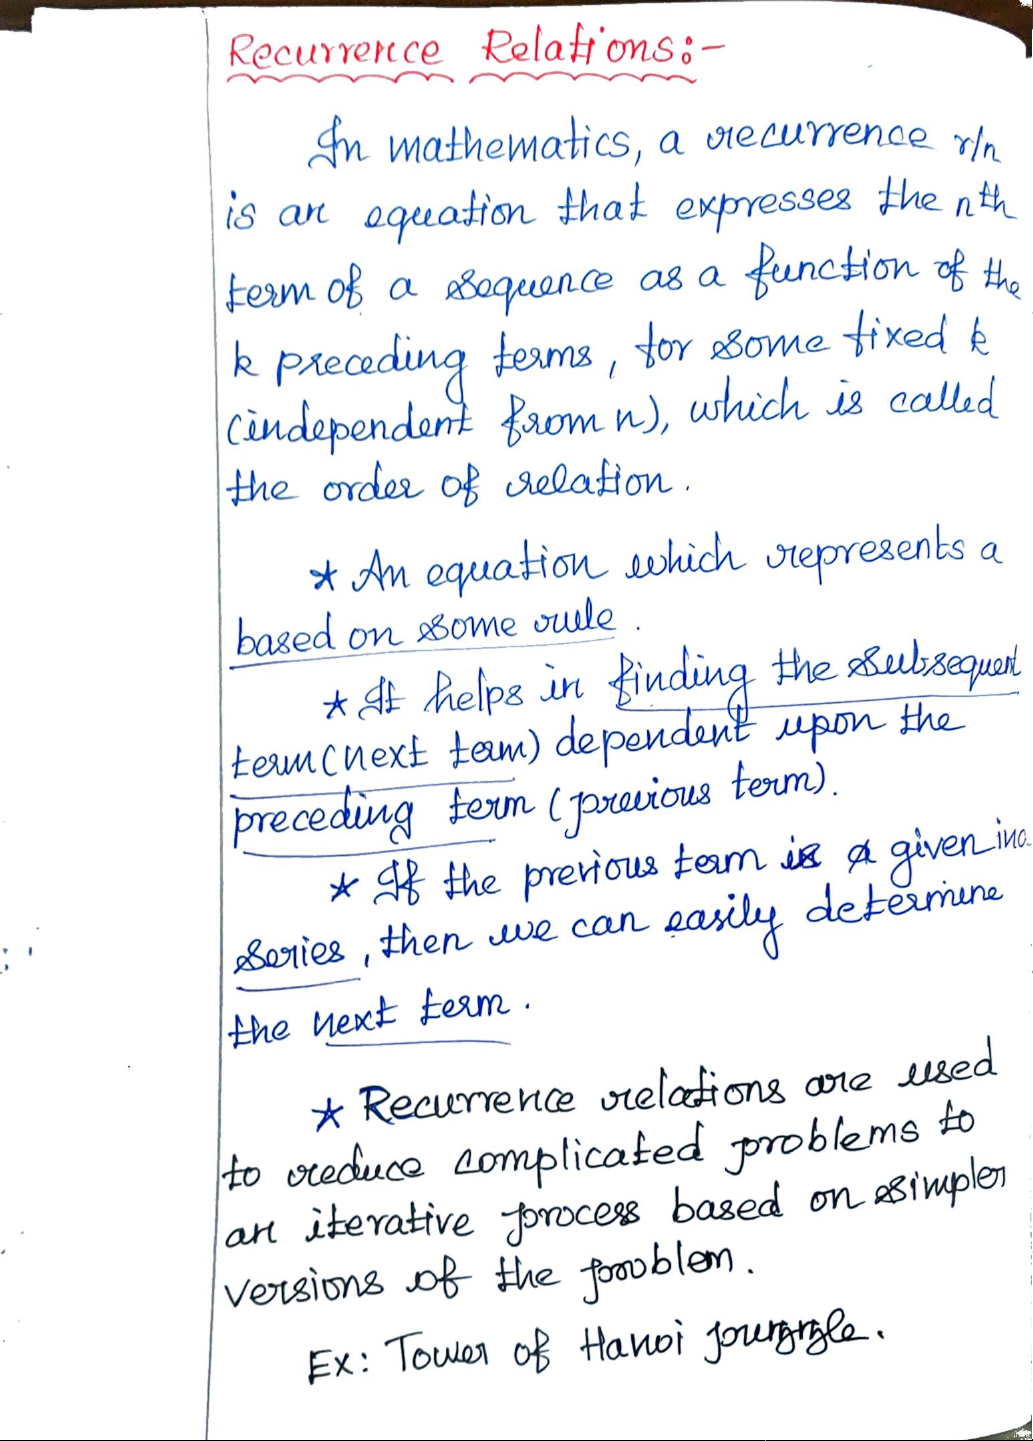 Recurrence Relations:-
In mathematics, a recurrence r/n
is an equation that expresses the nth
term of a sequence as a function of the
k preceding terms, for some fixed k
(independent from n), which is called
the order of relation.
* An equation which represents a
based on some rule.
* It helps in finding the subsequent
term (next term) dependent upon the
preceding term (previous term).
* If the previous term is a given in a
series, then we can easily determine
the next term.
* Recurrence relations are used
to reduce complicated problems to
an iterative process based on simpler
versions of the problem.
Ex: Tower of Hanoi